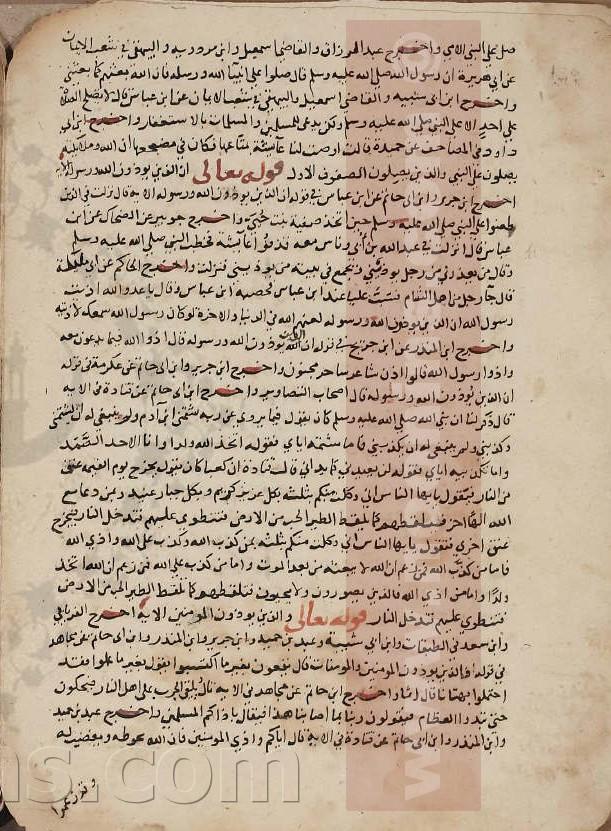 صل على النبي الامي واخرج عبد الرزاق والقاضي اسمعيل وابن مردويه والبيهقي في شعب الايمان
عن ابي هريرة ان رسول الله صلى الله عليه وسلم قال صلوا على انبيآ الله ورسله فان الله بعثهم كما بعثني
واخرج ابن ابي شيبة والقاضي اسمعيل والبيهقي في شعب الايمان عن ابن عباس قال لا تصلح الصلاة
على احد الا على النبي صلى الله عليه وسلم ولكن يدعى للمسلمين والمسلمات بالاستغفار واخرج ابن ابي
داود في المصاحف عن حميدة قالت اوصت لنا عائشة بمتاعها فكان في مصحفها ان الله وملائكته
يصلون على النبي والذين يصلون الصفوف الاول قوله تعالى ان الذين يوذون الله ورسوله الاية
اخرج ابن جرير وابن ابي حاتم عن ابن عباس في قوله ان الذين يوذون الله ورسوله الاية قال نزلت في الذين
طعنوا على النبي صلى الله عليه وسلم حين اتخذ صفية بنت حيي واخرج جويبر عن الضحاك عن ابن
عباس قال انزلت في عبد الله بن ابي وناس معه قذفوا عائشة فخطب النبي صلى الله عليه وسلم
وقال من يعذرني من رجل يوذيني ويجمع في بيته من يوذيني فنزلت واخرج الحاكم عن ابن ابي مليكة
قال جآ رجل من اهل الشام فسب عليا عند ابن عباس فحصبه ابن عباس وقال يا عدو الله اذيت
رسول الله ان الذين يوذون الله ورسوله لعنهم الله في الدنيا والاخرة لو كان رسول الله حيا لاذيته
واخرج ابن المنذر عن ابن جريج في قوله ان الذين يوذون الله ورسوله قال اذوا الله فيما يدعون معه
واذوا رسول الله قالوا انه شاعر ساحر مجنون واخرج ابن جرير وابن ابي حاتم عن عكرمة في قوله
ان الذين يوذون الله ورسوله قال اصحاب التصاوير واخرج ابن ابي حاتم عن قتادة في الاية
قال ذكر لنا ان نبي الله صلى الله عليه وسلم كان يقول فيما يروي عن ربه شتمني ابن آدم ولم ينبغي له ان يشتمني
وكذبني ولم ينبغي له ان يكذبني فاما شتمه اياي فقوله اتخذ الله ولدا وانا الاحد الصمد
واما تكذيبه اياي فقوله لن يعيدني كما بداني قال قتادة ان كعبا كان يقول يخرج يوم القيمة عنق
من النار فيقول يايها الناس اني وكلت منكم بثلثه بكل عزيز كريم وبكل جبار عنيد وبمن دعا مع
الله الها اخر فيلتقطهم كما يلقط الطير الحب من الارض فتنطوي عليهم فتدخل النار فيخرج
عنق اخرى فتقول يايها الناس اني وكلت منكم بثلثه بمن كذب الله وكذب على الله واذى الله
فاما من كذب الله فمن زعم ان الله لا يبعثه من بعد الموت واما من كذب على الله فمن زعم ان الله اتخذ
ولدا واما من اذى الله فالذين يصورون ولا يحيون فتلتقطهم كما تلقط الطير الحب من الارض
فتنطوي عليهم فتدخل النار قوله تعالى والذين يوذون المومنين الاية اخرج الفريابي
وابن سعد في الطبقات وابن ابي شيبة وعبد بن حميد وابن جرير وابن المنذر وابن ابي حاتم عن مجاهد
في قوله والذين يوذون المومنين والمومنات قال يقفون بغير ما اكتسبوا يقول بغير ما عملوا فقد
احتملوا بهتانا قال اثما واخرج ابن ابي حاتم عن مجاهد في الاية قال يلقى الجرب على اهل النار فيحكون
حتى تبدوا العظام فيقولون ربنا بما اصابنا هذا فيقال باذاكم المسلمين واخرج عبد بن حميد
وابن المنذر وابن ابي حاتم عن قتادة في الاية قال اياكم واذى المومنين فان الله يحوطه ويغضب له
وقد زعموا
ns.com